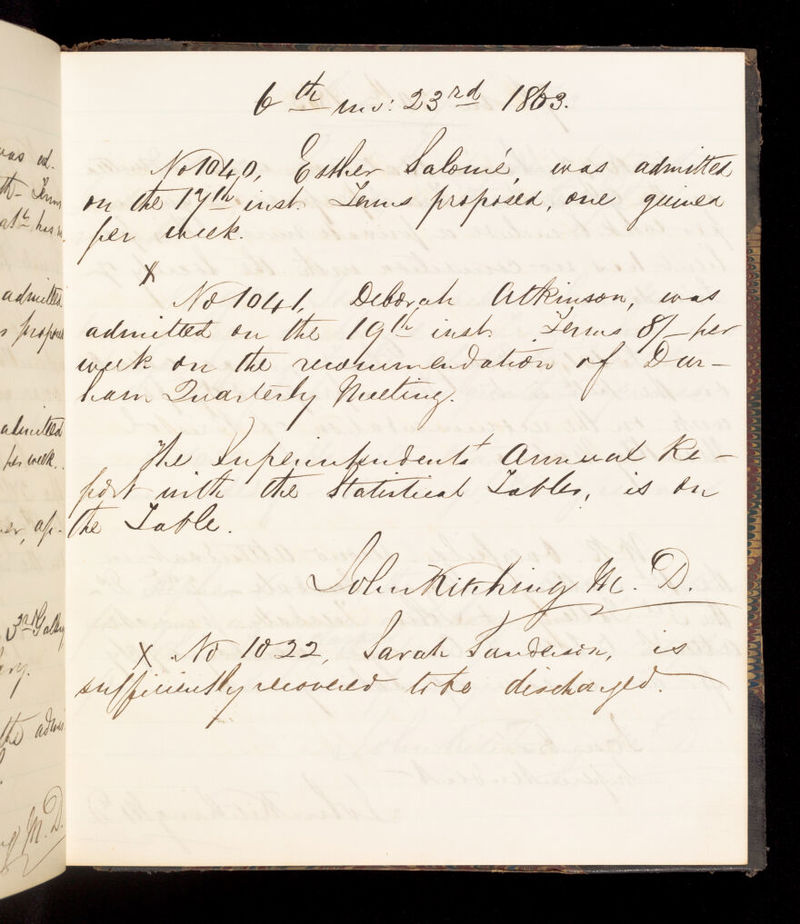 was ad-
6th mo: 23rd 1863.
No 1040, Esther Salomé, was admitted
on the 17th inst. Terms proposed, one guinea
per week.
X
No 1041, Deborah Atkinson, was
admitted on the 19th inst. Terms 8/- per
week on the recommendation of Dur-
ham Quarterly Meeting.
The Superintendent's Annual Re-
port with the Statistical Tables, is on
the Table.
John Kitching M. D.
X No 1022, Sarah Sanderson, is
sufficiently recovered to be discharged.
admitted
admitted
per week.
3rd Gallery
M. D.